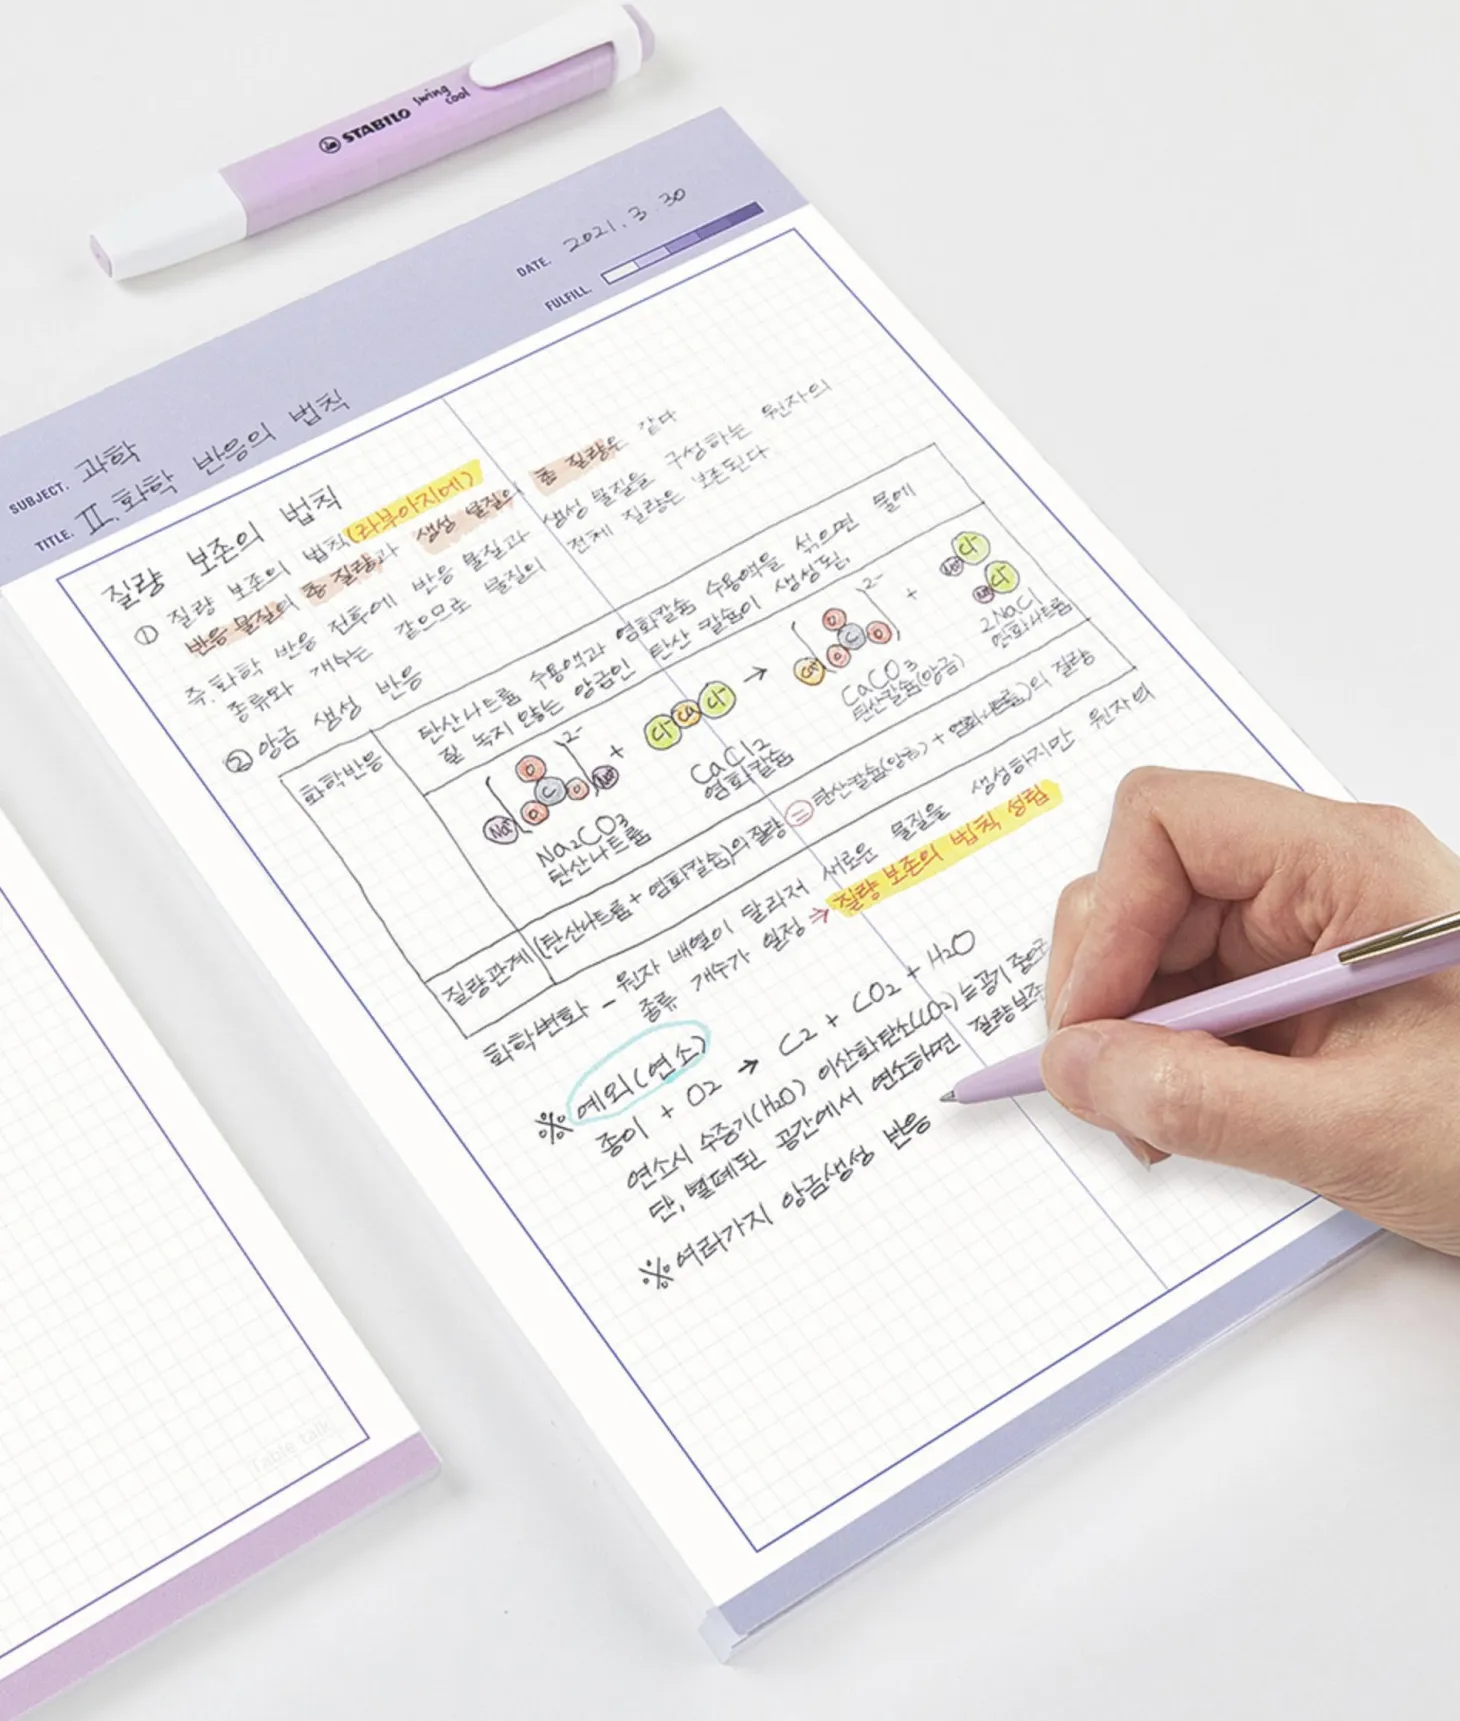 STABILO swing cool
DATE. 2021. 3. 30
FULFILL.
SUBJECT. 과학
TITLE. Ⅱ. 화학 반응의 법칙
질량 보존의 법칙
① 질량 보존의 법칙(라부아지에)
반응 물질의 총 질량과 생성 물질의 총 질량은 같다
즉, 화학 반응 전후에 반응 물질과 생성 물질을 구성하는 원자의
종류와 개수는 같으므로 물질의 전체 질량은 보존된다
② 앙금 생성 반응
화학반응
탄산나트륨 수용액과 염화칼슘 수용액을 섞으면 물에
잘 녹지 않는 앙금인 탄산 칼슘이 생성됨
Na⁺ O C O O Na⁺ 2- + Cl⁻ Ca Cl⁻ → Ca O O C O 2- + Cl⁻ Cl⁻
Na₂CO₃
탄산나트륨
CaCl₂
염화칼슘
CaCO₃
탄산칼슘(앙금)
2NaCl
염화나트륨
질량관계
(탄산나트륨 + 염화칼슘)의 질량 = 탄산칼슘(앙금) + 염화나트륨)의 질량
화학변화 - 원자 배열이 달라져 새로운 물질을 생성하지만 원자의
종류 개수가 일정 ⇒ 질량 보존의 법칙 성립
※ 예외(연소)
종이 + O₂ → C2 + CO₂ + H₂O
연소시 수증기(H₂O) 이산화탄소(CO₂)는 공기 중으로
단, 밀폐된 공간에서 연소하면 질량보존
※ 여러가지 앙금생성 반응
Table talk